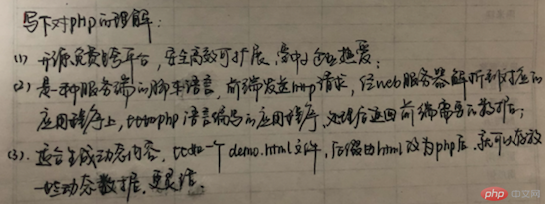 写下对php的理解:
(1) 开源免费跨平台,安全高效可扩展,高中小企热爱;
(2) 是一种服务端的脚本语言,前端发送http请求,经web服务器解析到对应的
应用程序上,比如php语言编写的应用程序,处理后返回前端需要的数据;
(3). 适合生成动态内容,比如一个demo.html文件,后缀由html改为php后,就可以存放
一些动态数据,更灵活.
php 中文网